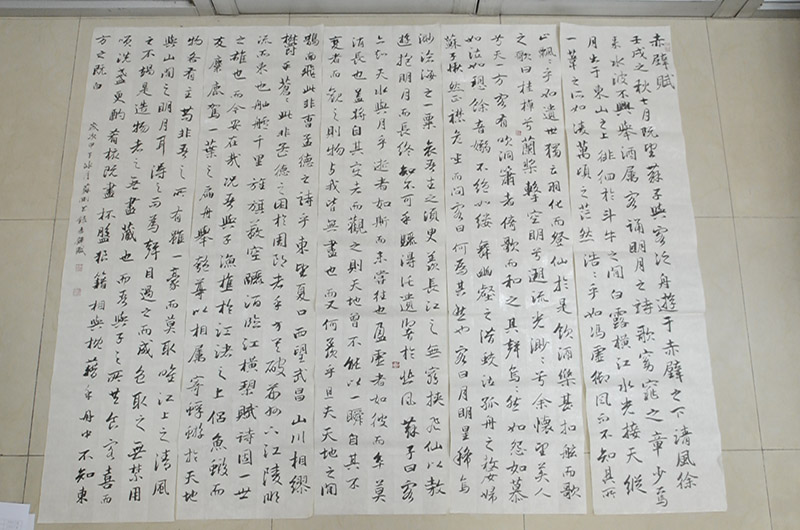 赤壁賦
壬戌之秋七月既望蘇子與客泛舟遊于赤壁之下清風徐
來水波不興舉酒屬客誦明月之詩歌窈窕之章少焉
月出于東山之上徘徊于斗牛之間白露橫江水光接天縱
一葦之所如凌萬頃之茫然浩浩乎如馮虛御風而不知其所
止飄飄乎如遺世獨立羽化而登仙於是飲酒樂甚扣舷而歌
之歌曰桂棹兮蘭槳擊空明兮溯流光渺渺兮余懷望美人
兮天一方客有吹洞簫者倚歌而和之其聲烏烏然如怨如慕
如泣如訴餘音嫋嫋不絕如縷舞幽壑之潛蛟泣孤舟之嫠婦
蘇子愀然正襟危坐而問客曰何為其然也客曰月明星稀烏
渺滄海之一粟哀吾生之須臾羨長江之無窮挾飛仙以遨
遊抱明月而長終知不可乎驟得託遺響於悲風蘇子曰客
亦知夫水與月乎逝者如斯而未嘗往也盈虛者如彼而卒莫
消長也蓋將自其變者而觀之則天地曾不能以一瞬自其不
變者而觀之則物與我皆無盡也而又何羨乎且夫天地之間
鵲南飛此非曹孟德之詩乎東望夏口西望武昌山川相繆
鬱乎蒼蒼此非孟德之困於周郎者乎方其破荊州下江陵順
流而東也舳艫千里旌旗蔽空釃酒臨江橫槊賦詩固一世
之雄也而今安在哉況吾與子漁樵於江渚之上侶魚蝦而
友麋鹿駕一葉之扁舟舉匏尊以相屬寄蜉蝣於天地
物各有主苟非吾之所有雖一豪而莫取唯江上之清風
與山間之明月耳得之而為聲目遇之而成色取之無禁用
之不竭是造物者之無盡藏也而吾與子之所共食客喜而
笑洗盞更酌肴核既盡杯盤狼藉相與枕藉乎舟中不知東
方之既白
歲次甲午